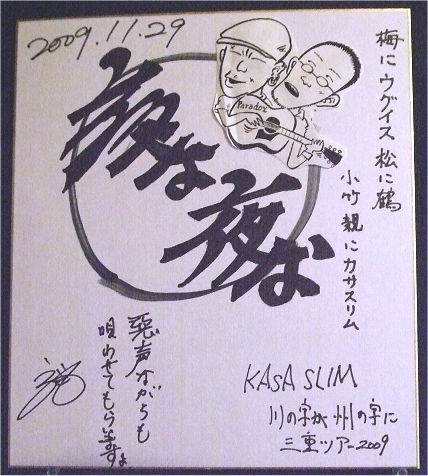 2009.11.29
梅にウグイス 松に鶴
小竹親にカサスリム
Paradox
夜な
夜な
悪声ながらも
唄わせてもらいますよ
KASA SLIM
川の字が州の字に
三重ツアー2009